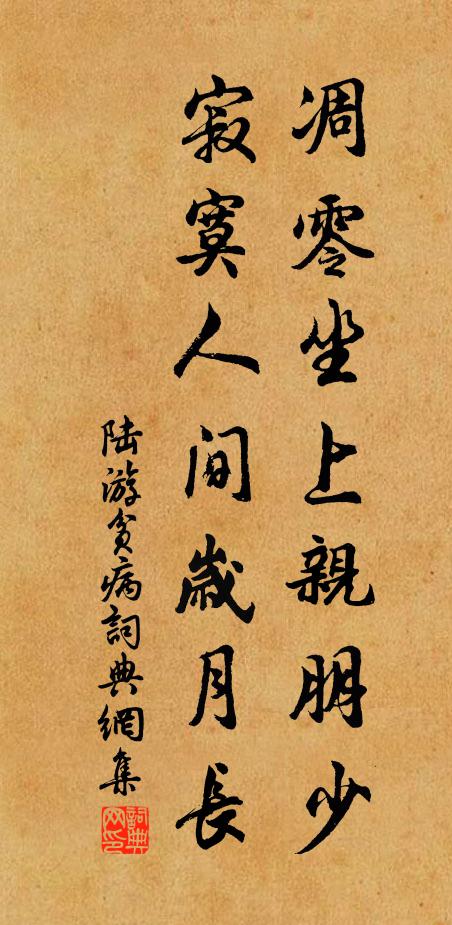 凋零坐上親朋少
寂寞人間歲月長
陸游貧病詞典網集
詞典網印